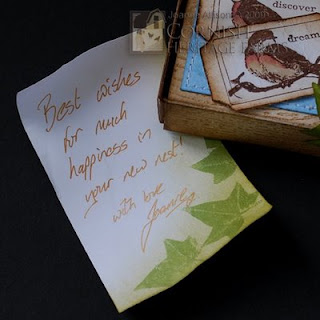 discover
dream
Best wishes
for much
happiness in
your new nest!
with love
Joanne